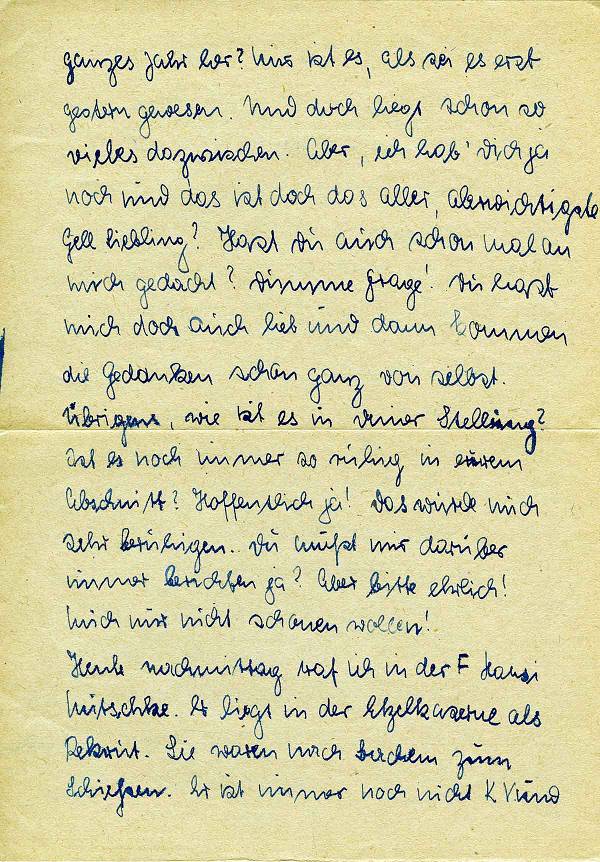 ganzes Jahr her? Mir ist es, als sei es erst
gestern gewesen. Und doch liegt schon so
vieles dazwischen. Aber, ich hab' Dich ja
noch und das ist doch das aller, allerwichtigste
Gell Liebling? Hast Du auch schon mal an
mich gedacht? Dumme Frage! Du hast
mich doch auch lieb und dann kommen
die Gedanken schon ganz von selbst.
Übrigens, wie ist es in Deiner Stellung?
Ist es noch immer so ruhig in eurem
Abschnitt? Hoffentlich ja! Das würde mich
sehr beruhigen. Du mußt mir darüber
immer berichten ja? Aber bitte ehrlich!
Mich nur nicht schonen wollen!
Heute nachmittag traf ich in der F Hansi
Mitschke. Er liegt in der Etzelkaserne als
Rekrut. Sie waren nach zum
Schießen. Er ist immer noch nicht KV und